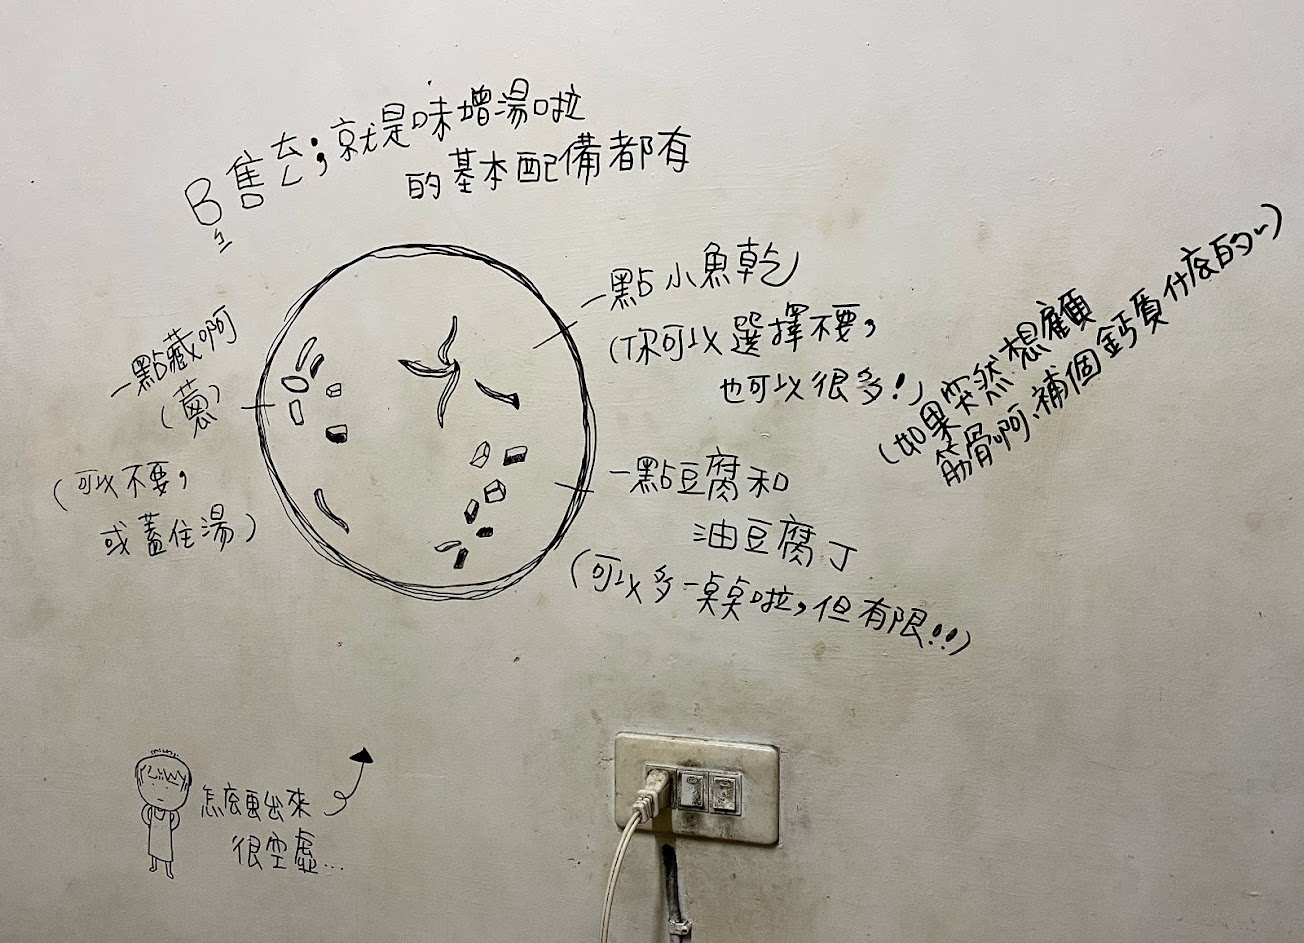 B售去；就是味增湯啦
的基本配備都有
一點小魚乾
(你可以選擇不要，
也可以很多！)
(如果突然想顧
筋骨啊、補個鈣質什麼的~)
一點藏啊
(蔥)
(可以不要，
或蓋住湯)
一點豆腐和
油豆腐丁
(可以多一桌桌啦，但有限!!)
怎麼畫出來
很空虛...